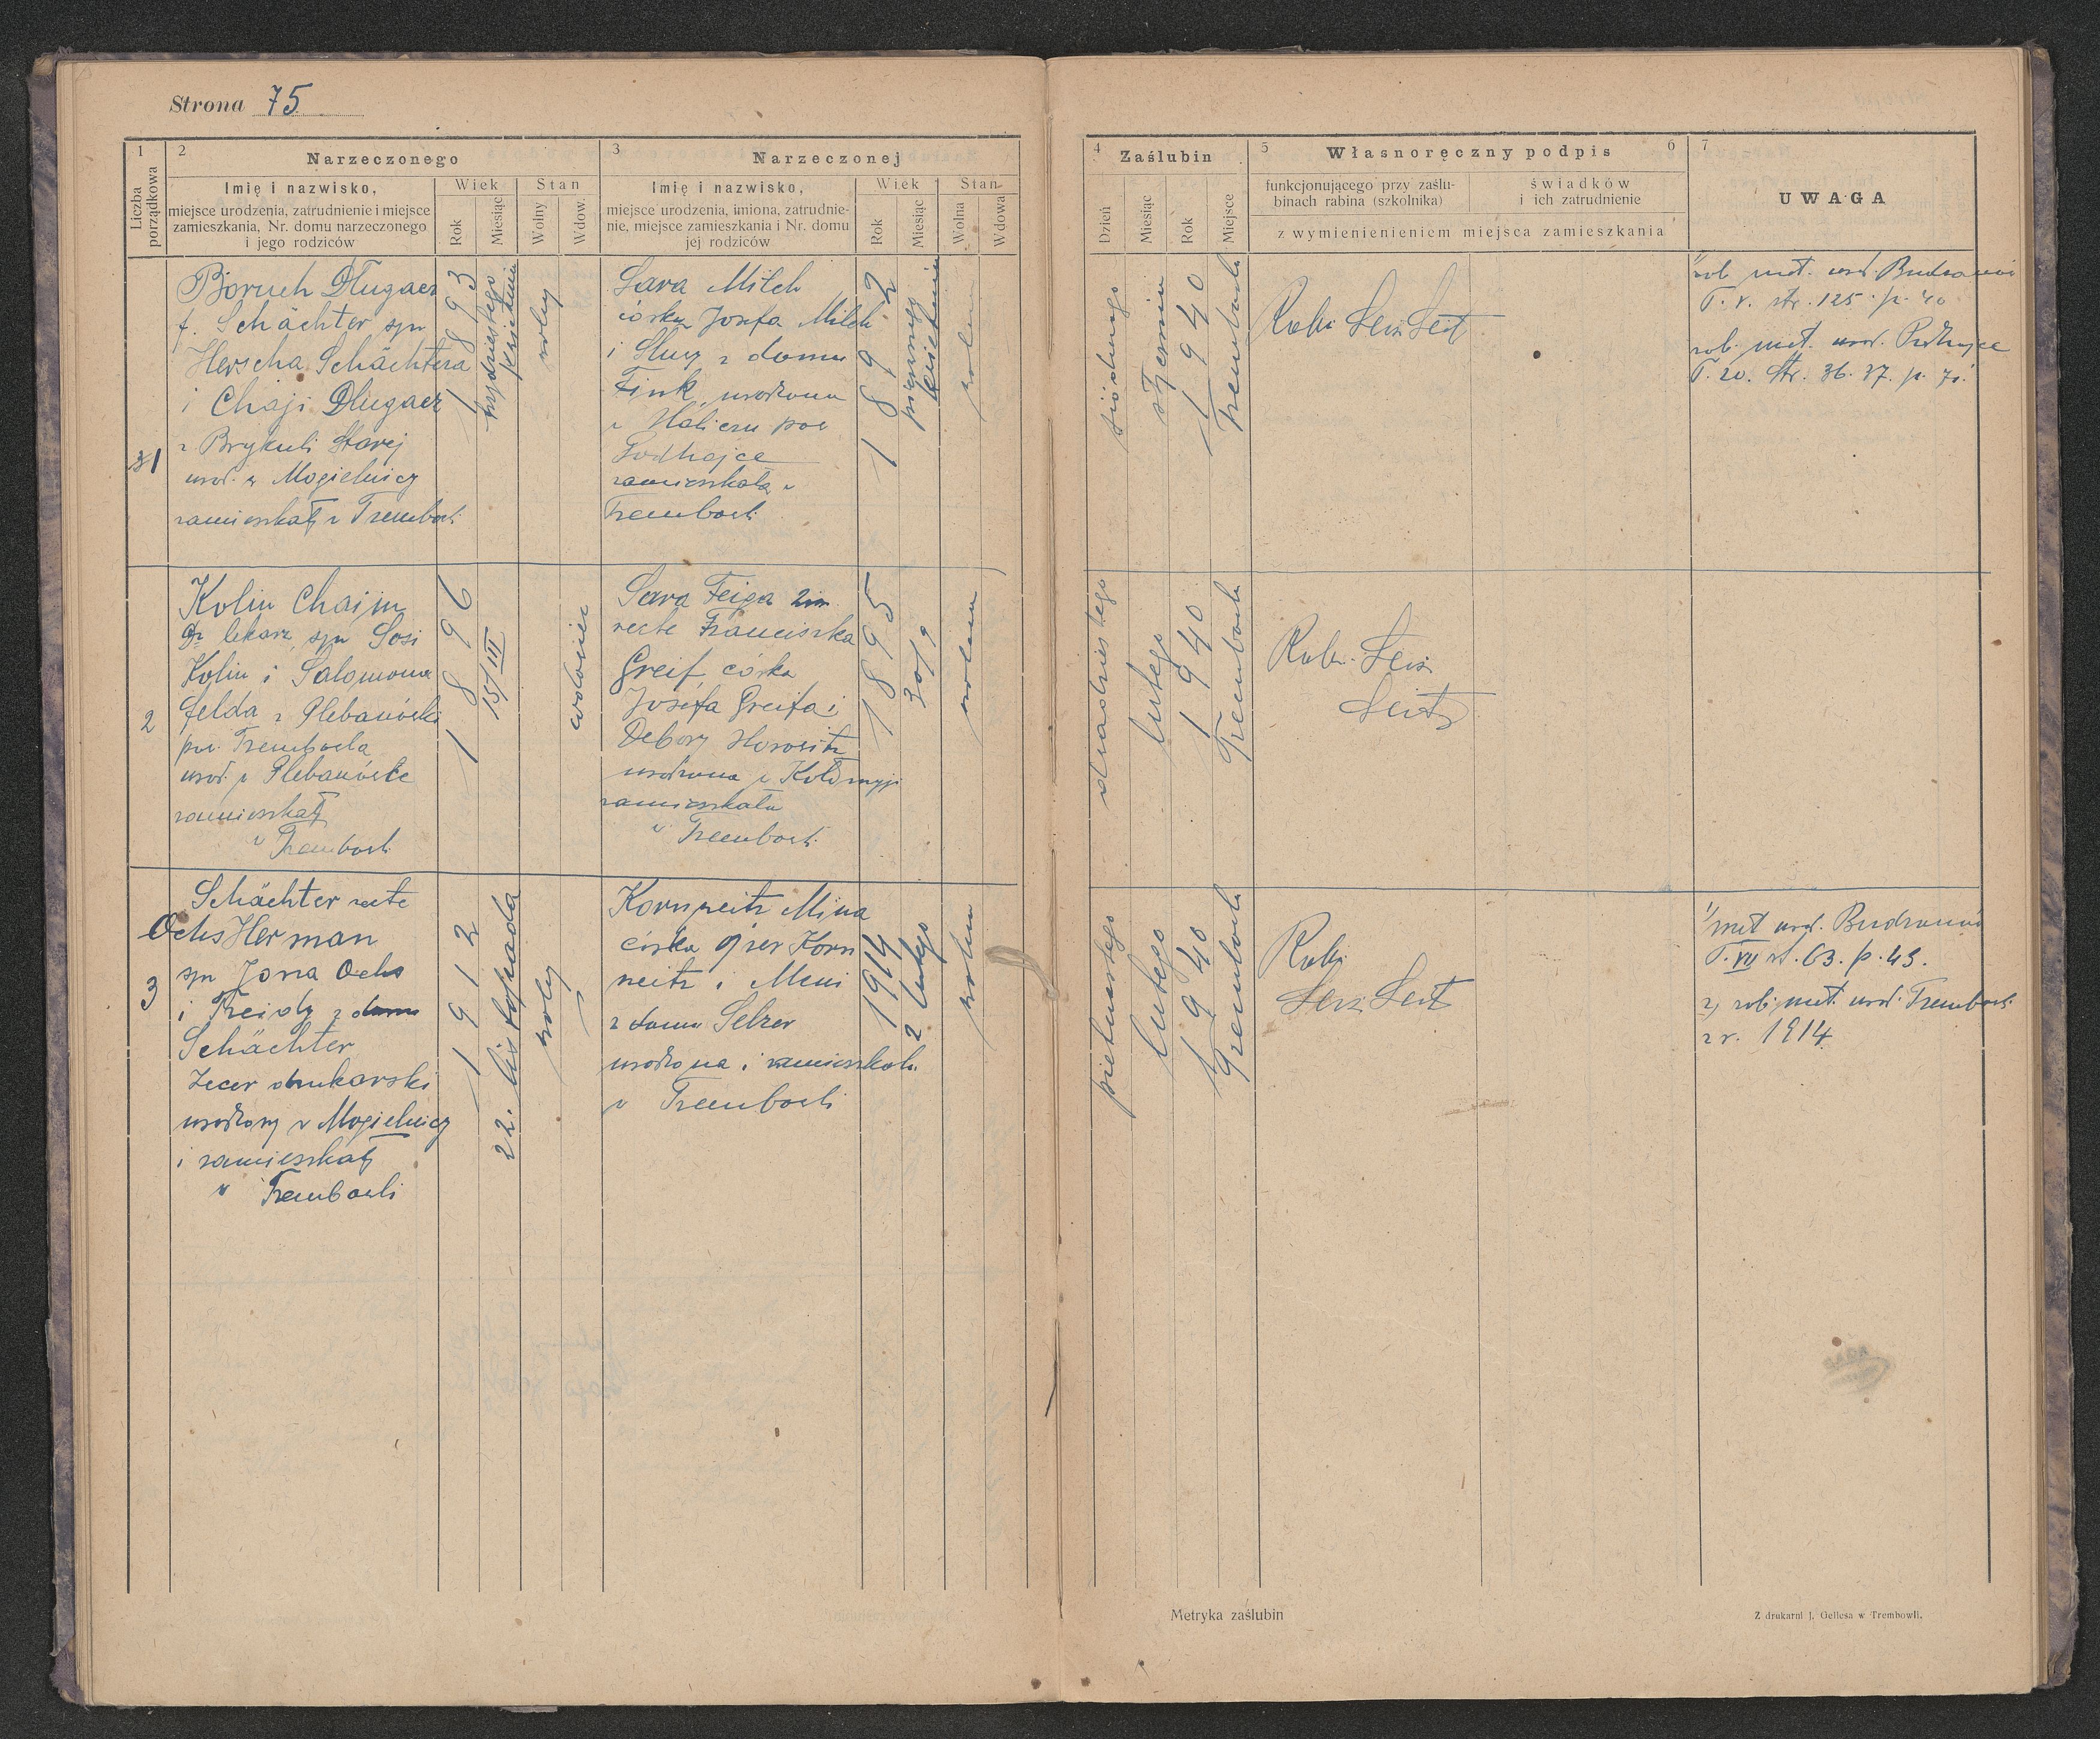 Strona 75
1
2
Narzeczonego
3
Narzeczonej
Liczba porządkowa
Imię i nazwisko,
miejsce urodzenia, zatrudnienie i miejsce
zamieszkania, Nr. domu narzeczonego
i jego rodziców
Wiek
Stan
Rok
Miesiąc
Wolny
Wdow.
Imię i nazwisko,
miejsce urodzenia, imiona, zatrudnie-
nie, miejsce zamieszkania i Nr. domu
jej rodziców
Wiek
Stan
Rok
Miesiąc
Wolna
Wdowa
4
Zaślubin
5
Własnoręczny podpis
6
7
Dzień
Miesiąc
Rok
Miejsce
funkcjonującego przy zaślu-
binach rabina (szkolnika)
świadków
i ich zatrudnienie
z wymienieniem miejsca zamieszkania
UWAGA
1
Boruch Długacz
f. Schächter syn
Herscha Schächtera
i Chaji Długacz
z Brykuli Starej
urod. w Mogielnicy
zamieszkały w Trembowli
1893
trzydziestego
kwietnia
wolny
Sara Milch
córka Josefa Milch
i Slucy z domu
Fink, urodzona
w Haliczu pow
Podhajce
zamieszkała w
Trembowli
1892
pierwszego
kwietnia
wolna
siódmego
stycznia
1940
Trembowla
Rabi Leiz Leit
zob. met. urod. Budzanów
T. V. str. 125. p. 40
zob. met. urod. Podhajce
T. 20. Str. 36. 37. p. 71.
2
Kolin Chaim
Dr lekarz, syn Sosi
Kolin i Salomona
Felda z Plebanówki
pow. Trembowla
urod. w Plebanówce
zamieszkały
w Trembowli
1896
15/III
wdowiec
Sara Feiga 2im.
recte Franciszka
Greif, córka
Josefa Greifa i
Debory Horowitz
urodzona w Kołomyji
zamieszkała
w Trembowli
1895
30/9
wolna
dwudziestego
lutego
1940
Trembowla
Rabi Leiz
Leit
3
Schächter recte
Ochs Herman
syn Jona Ochs
i Freidy z domu
Schächter
Zecer drukarski
urodzony w Mogielnicy
i zamieszkały
w Trembowli
1912
22. listopada
wolny
Kornweitz Mina
córka Ojzer Korn
weitz i Meni
z domu Selzer
urodzona i zamieszkała
w Trembowli
1914
2 lutego
wolna
piętnastego
lutego
1940
Trembowla
Rabi
Leiz Leit
1/ met urod. Budzanów
T. VII st. 63. p. 43.
2) zob. met. urod. Trembowli
z r. 1914
Metryka zaślubin
Z drukarni J. Oellesa w Trembowli.